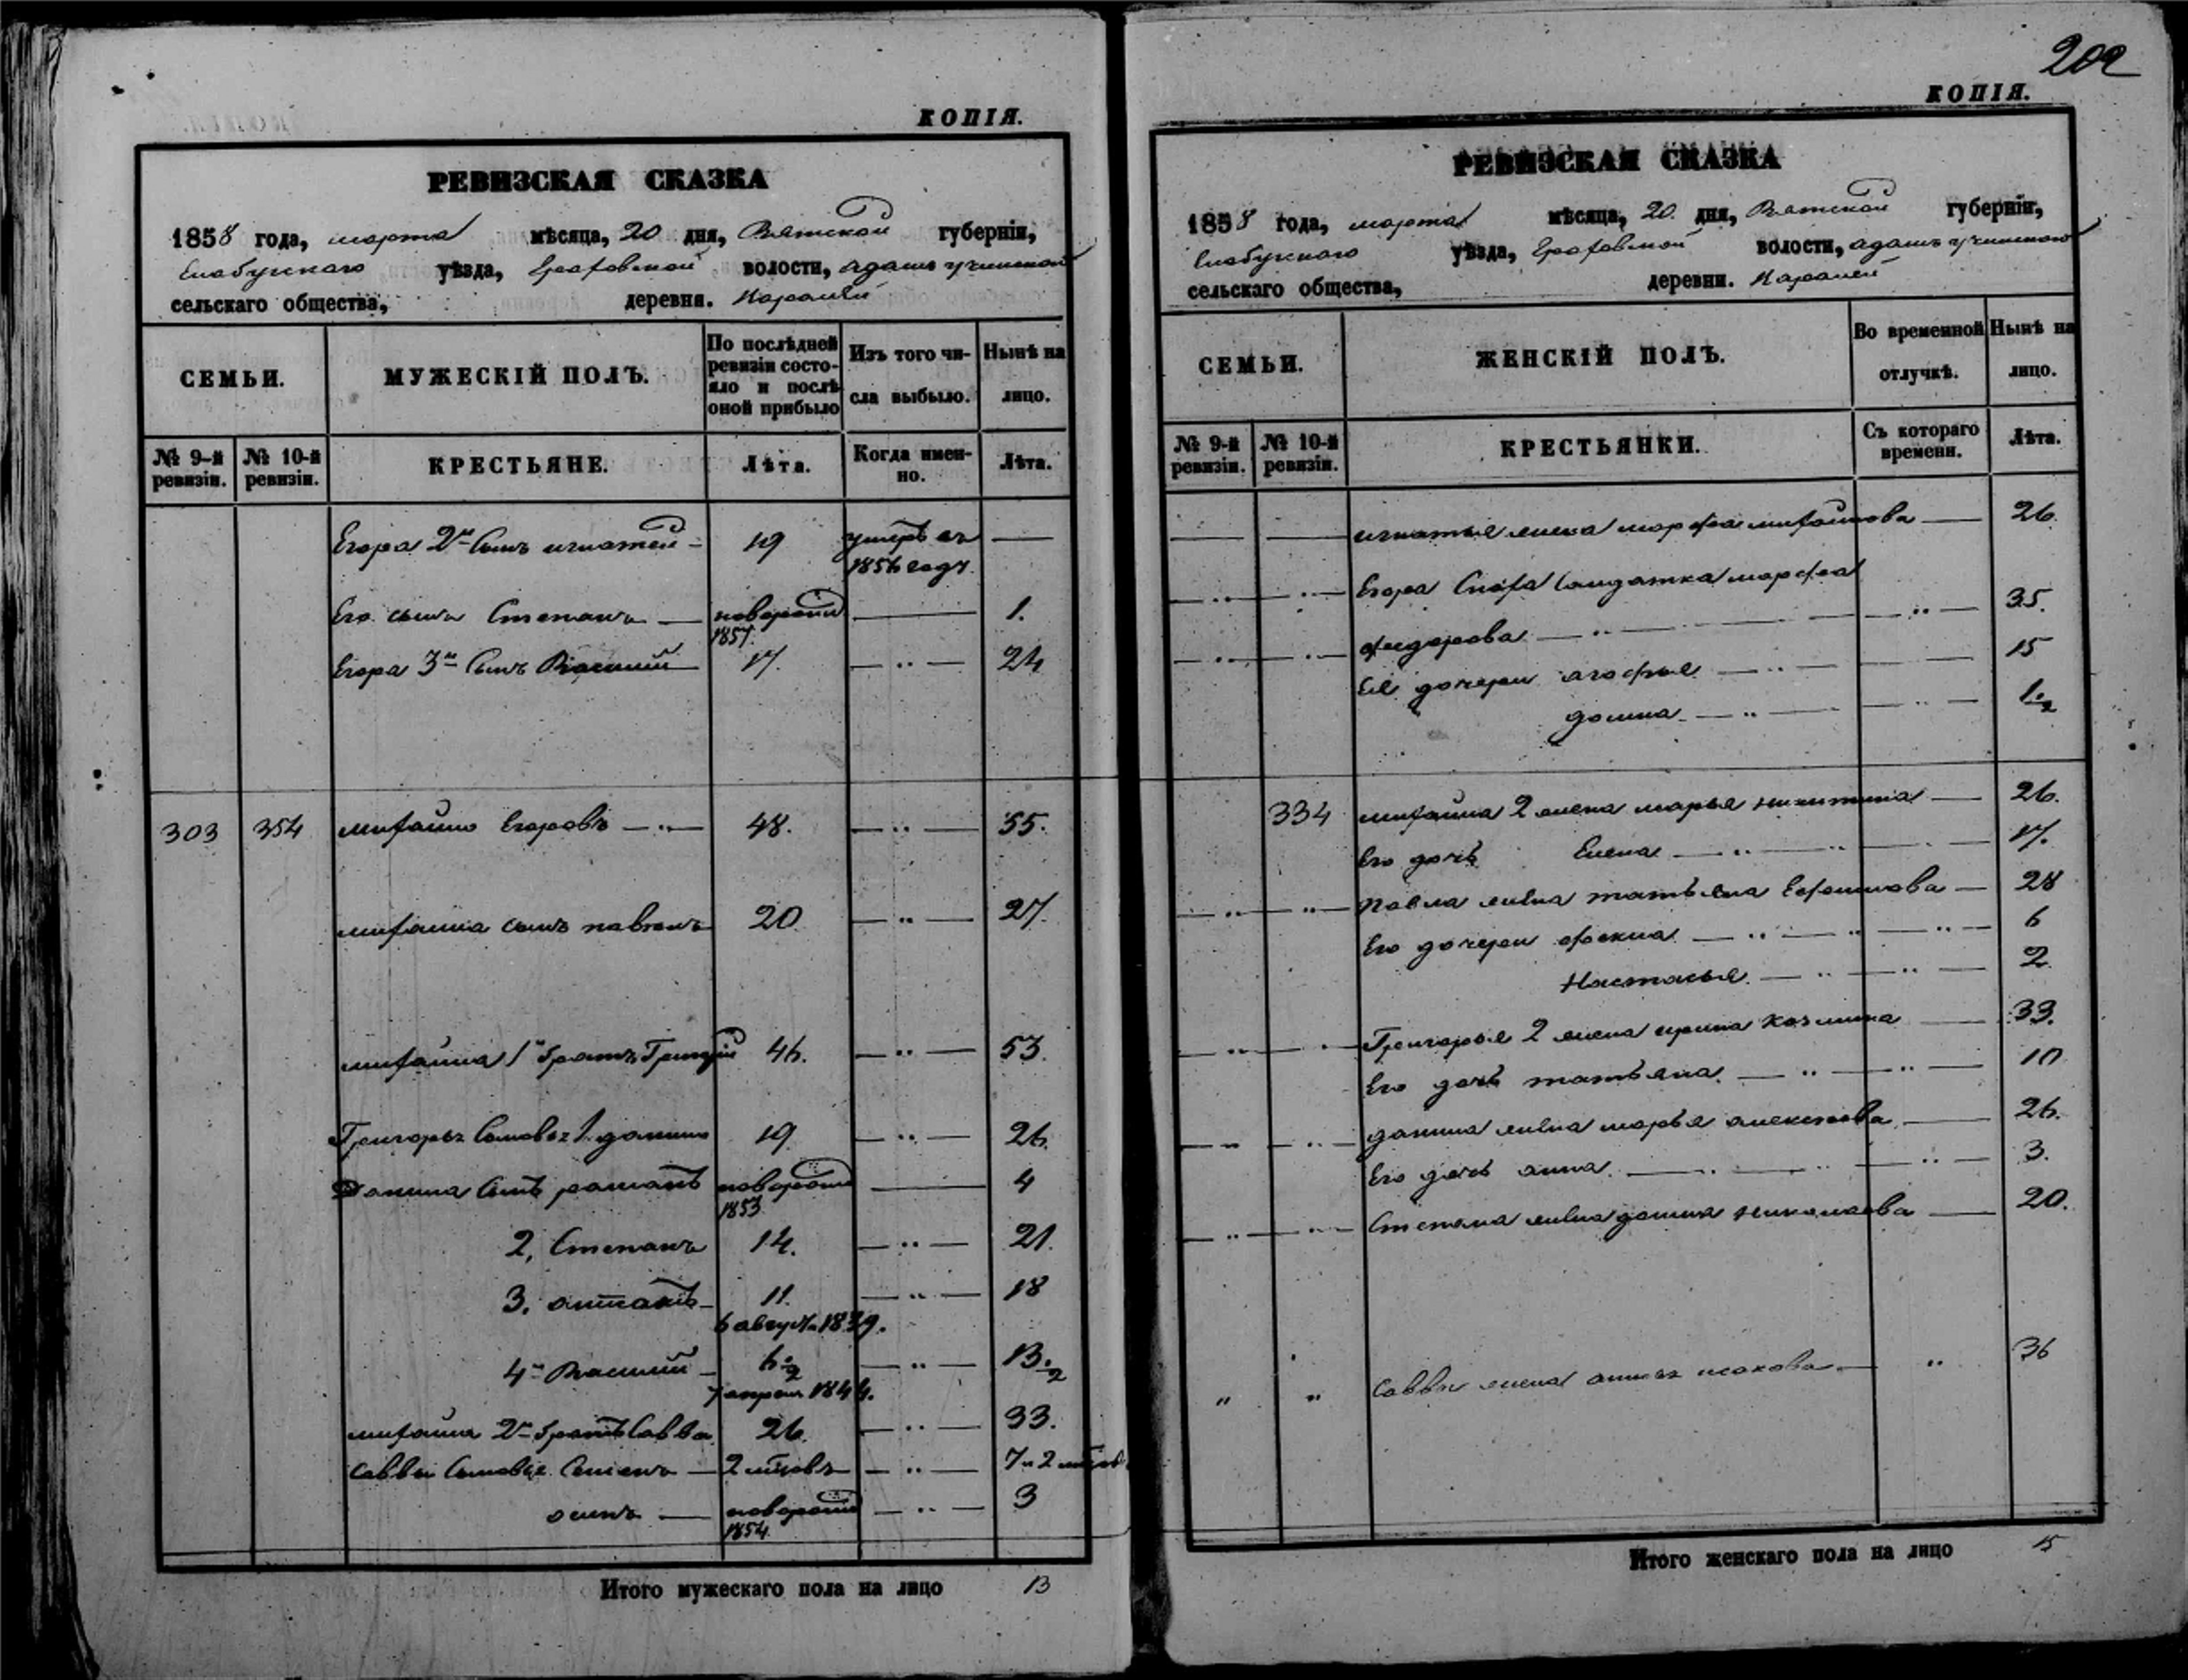 КОПІЯ.
РЕВИЗСКАЯ СКАЗКА
1858 года, марта мѣсяца, 20 дня, Вятской губерніи,
Елабужскаго уѣзда, Граховской волости,
сельскаго общества, деревня.
СЕМЬИ.
МУЖЕСКІЙ ПОЛЪ.
По послѣдней ревизіи состояло и послѣ оной прибыло
Изъ того числа выбыло.
Нынѣ на лицо.
№ 9-й ревизіи.
№ 10-й ревизіи.
КРЕСТЬЯНЕ.
Лѣта.
Когда именно.
Лѣта.
Егора 2й Сынъ игнатей 19 умеръ въ —
1856 году
Его сынъ Степанъ — новорожд — 1.
1857.
Егора 3й Сынъ Василий 17. — 24
303 354 михайло Егоровъ — 48. — 55.
михайла сынъ павелъ 20 — 27.
михайла 1й братъ Григорій 46. — 53.
Григорья Сыновья 1. данило 19 — 26.
Данила Сынъ романъ новорожд — 4
1853
2, Степанъ 14. — 21.
3. 11. — 18
6 августа 1839.
4й Василий — 6 1/2 — 13. 1/2
7 апреля 1844.
михайла 2й братъ Савва 26. — 33.
Саввы Сыновья Семенъ — 2 мѣсяцовъ — 7 и 2 мѣсяц
осипъ — новорожд — 3
1854.
Итого мужескаго пола на лицо 13
202
КОПІЯ.
РЕВИЗСКАЯ СКАЗКА
1858 года, марта мѣсяца, 20 дня, Вятской губерніи,
Елабужскаго уѣзда, Граховской волости,
сельскаго общества, деревни.
СЕМЬИ.
ЖЕНСКІЙ ПОЛЪ.
Во временной отлучкѣ.
Нынѣ на лицо.
№ 9-й ревизіи.
№ 10-й ревизіи.
КРЕСТЬЯНКИ.
Съ котораго времени.
Лѣта.
игнатья жена марфа михайлова — 26.
Егора Сноха Солдатка марфа
Федорова — 35.
Ея дочери агофья — 15
домна — 1. 1/2
334 михайла 2 жена марья никитина — 26.
Его дочь Елена — 17.
Павла жена татьяна Ефимова — 28
Его дочери фекла — 6
Настасья — 2
Григорья 2 жена ирина — 33.
Его дочь татьяна — 10
данила жена марья алексеева — 26.
Его дочь анна — 3.
Степана жена домна николаева — 20.
Саввы жена — 36
Итого женскаго пола на лицо 15